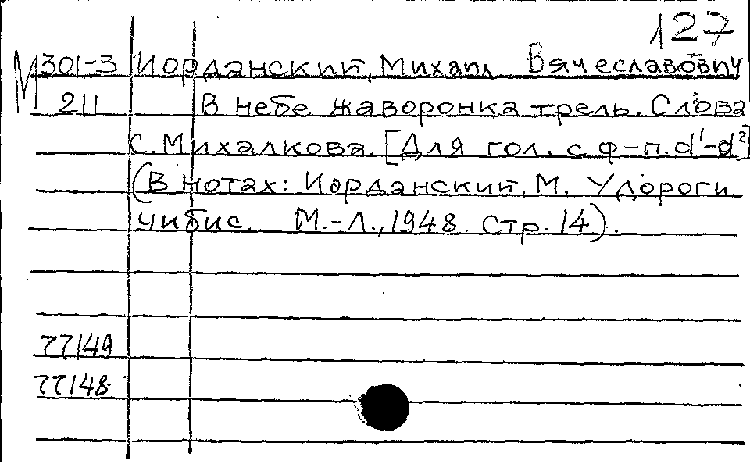 127
М 301-3 Иорданский, Михаил Вячеславович
211 В небе жаворонка трель. Слова
С. Михалкова. [Для гол. с ф-п. d¹-d²]
(В нотах: Иорданский, М. У дороги
чибис. М.-Л., 1948. Стр. 14).
77149
77148